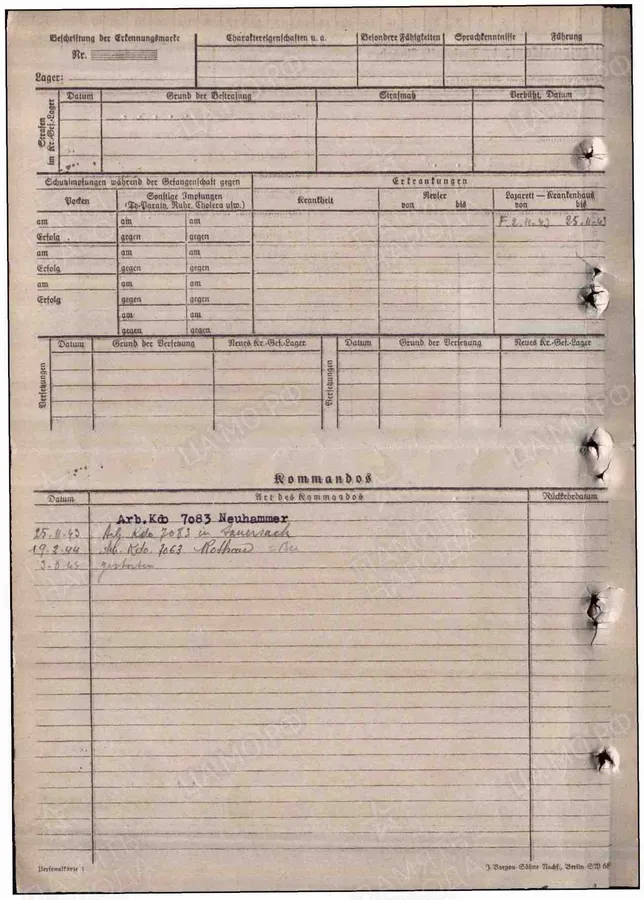 Beschriftung der Erkennungsmarke
Nr.
Lager:
Charaktereigenschaften u. a.
Besondere Fähigkeiten
Sprachkenntnisse
Führung
Strafen im Kr.-Gef.-Lager
Datum
Grund der Bestrafung
Strafmaß
Verbüßt, Datum
Schutzimpfungen während der Gefangenschaft gegen
Erkrankungen
Pocken
Sonstige Impfungen
(Ty-Parath, Ruhr, Cholera usw.)
Krankheit
Revier
von bis
Lazarett – Krankenhaus
von bis
am am am
2.11.43 25.11.43
Erfolg gegen gegen
am am am
Erfolg gegen gegen
am am am
Erfolg gegen gegen
am am
gegen gegen
Versetzungen
Datum
Grund der Versetzung
Neues Kr.-Gef.-Lager
Versetzungen
Datum
Grund der Versetzung
Neues Kr.-Gef.-Lager
Kommandos
Datum
Art des Kommandos
Rückkehrdatum
Arb.Kdo 7083 Neuhammer
25.11.43 Arb. Kdo 7083 in
19.2.44 Kdo. 7063 Rothau
gestorben
Personalkarte I
ЦАМО.РФ
ПАМЯТЬ НАРОДА